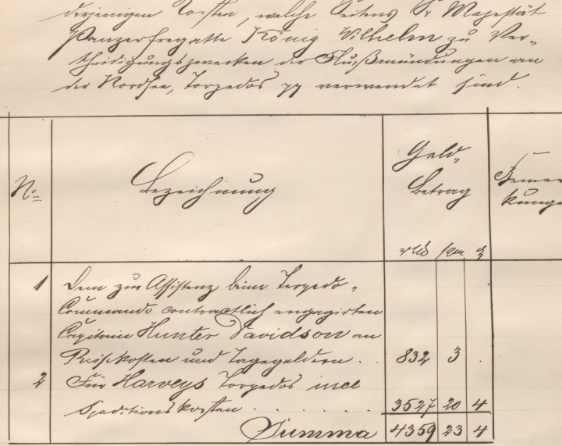 derjenigen Kosten, welche Seitens Sr Majestät
Panzerfregatte König Wilhelm zu Ver-
theidigungszwecken der Flußmündungen an
der Nordsee, Torpedos pp verwendet sind.
No Bezeichnung Geld-Betrag Bemerkunge
sgr
1 Dem zur Assistenz beim Torpedo-
Commando contractlich engagirten
Capitain Hunter Davidson an
Reisekosten und Tagegeldern . 832 3 .
2 Für Harveys Torpedos incl
Speditionskosten . . . . . . 3527 20 4
Summa 4359 23 4